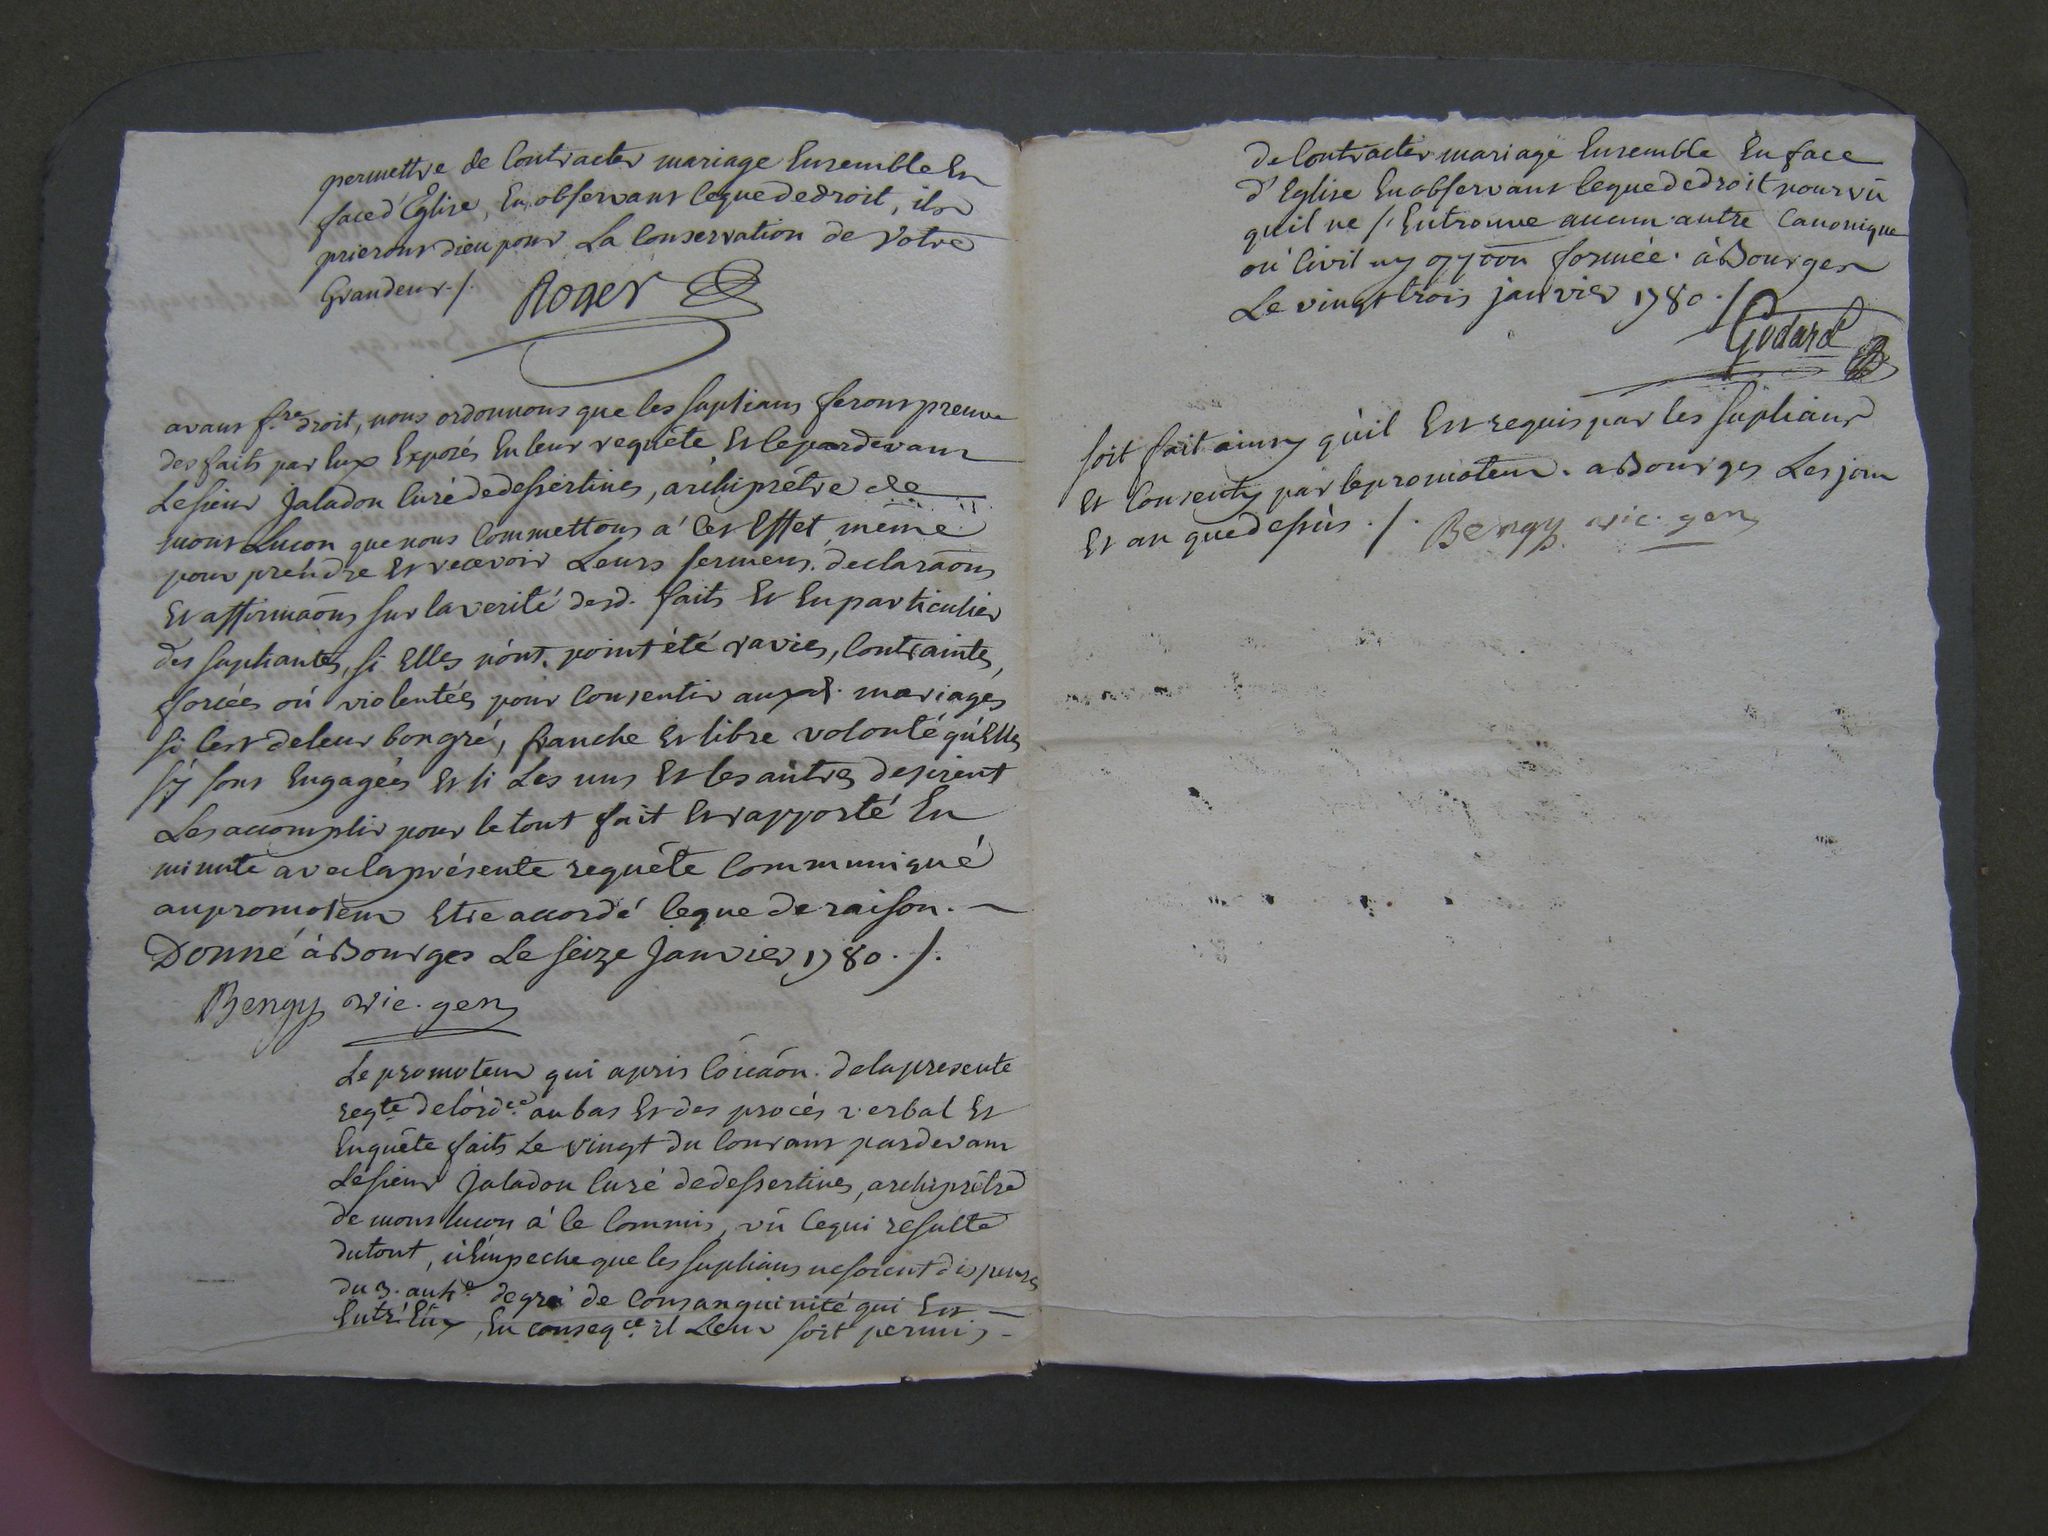 permettre de Contracter mariage Ensemble En
face d'Eglise, En observant ceque dedroit, ils
prieront dieu pour La Conservation de Votre
Grandeur./.
Roger
avant f.re droit, nous ordonnons que les supliants feront preuve
des faits par Eux Exposés En leur requête, Et ce pardevant
Le sieur Jaladon Curé dedessertines, archiprêtre de
mont Lucon que nous Commettons a' Cet Effet même
pour prendre Et recevoir Leurs sermens. declaraõns
Et affirmaõns sur laverité desd. faits Et En particulier
des supliantes, si Elles n'ont point été ravies, Contraintes,
forcées où violentées pour Consentir auxd. mariages
si C'est deleur bongré, franche Et libre volonté qu'Elles
s'y sont Engagées Et si Les uns Et les autres desirent
Les accomplir pour le tout fait Et rapporté En
minute avec la présente requête Communiqué
au promoteur Etre accordé ceque de raison.
Donné à Bourges Le seize Janvier 1780./.
Bengy vic. gen
Le promoteur qui a pris Cõicaõn. delapresente
reqte. de l'ordce. au bas Et des procés verbal Et
Enquête faits Le vingt du Courant pardevant
Le sieur Jaladon Curé dedessertines, archiprêtre
de mont lucon à Ce Commis, vû Cequi resulte
dutout, n'Empeche que les supliants ne soient dispensés
du 3. au 4e. degré de Consanguinité qui Est
Entr'Eux, En conseqce. il Leur soit permis
de Contracter mariage Ensemble En face
d'Eglise En observant ceque dedroit pourvû
qu'il ne s'Entrouve aucun autre Canonique
où Civil ny oppõõn formée. à Bourges
Le vingt trois janvier 1780./.
Godard
soit fait ainsy qu'il Est requis par les supliants
Et Consenty par le promoteur. a Bourges Les jour
Et an que dessus./. Bengy vic. gen